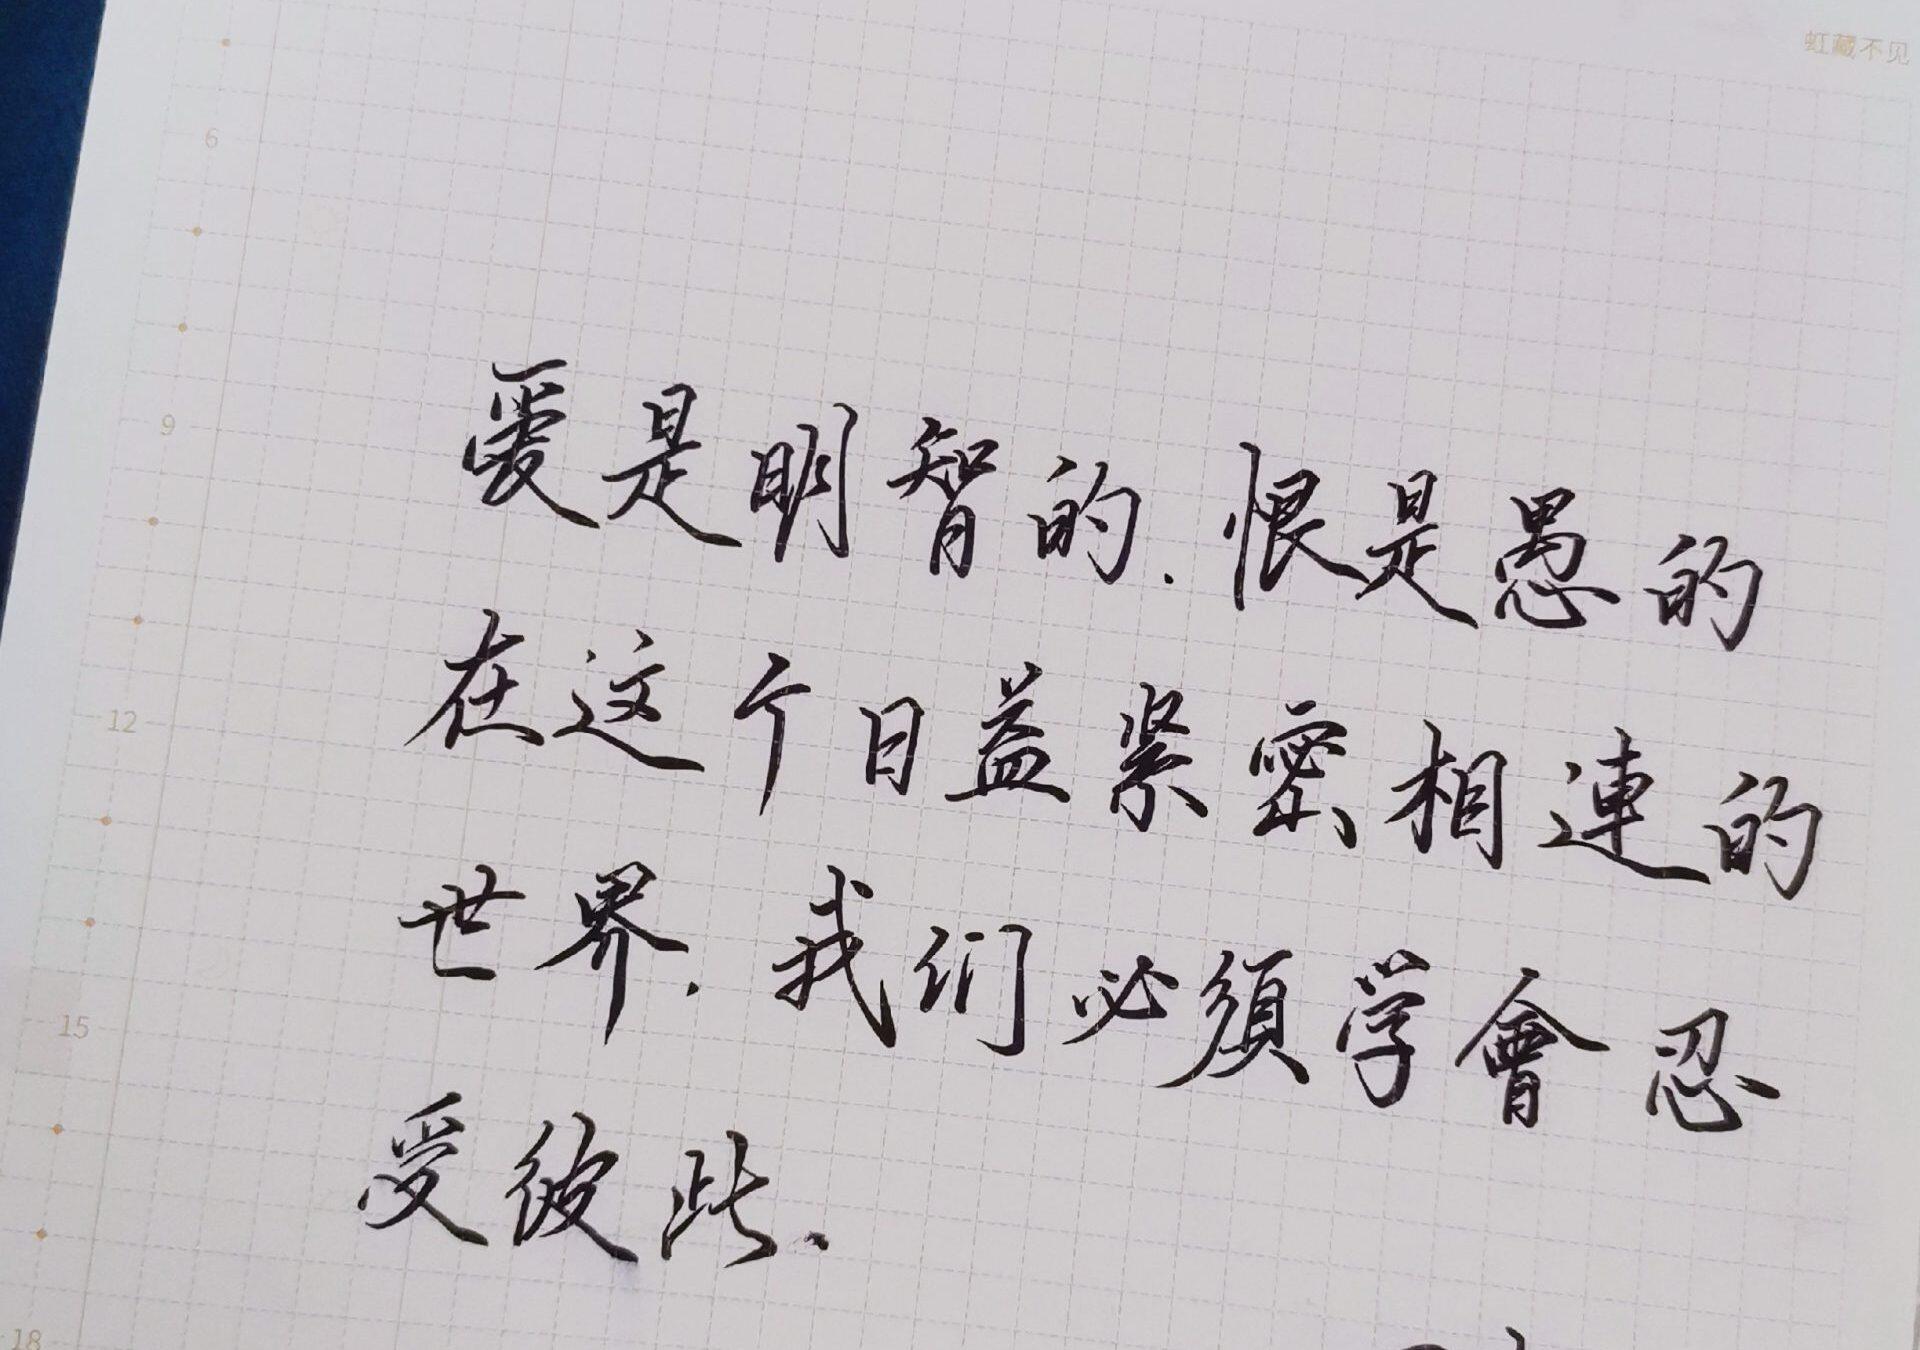 虹藏不见
6
9
12
15
18
爱是明智的.恨是愚的
在这个日益紧密相連的
世界.我们必須学會忍
受彼此.